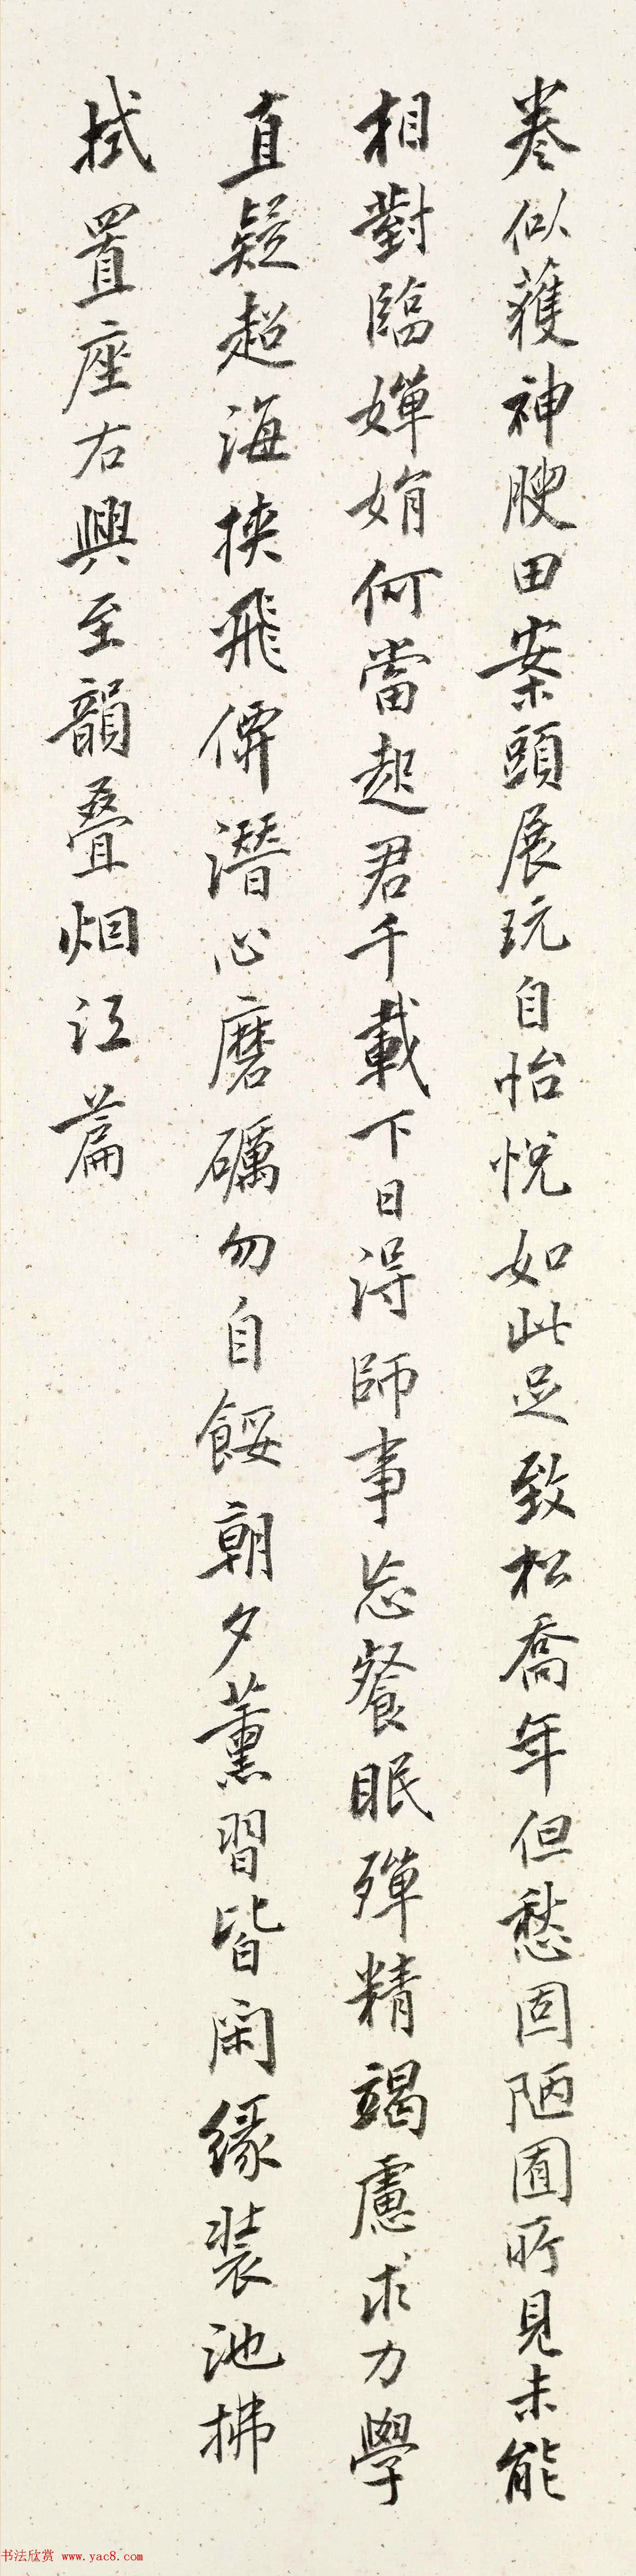 卷似獲神腴田案頭展玩自怡悅如此足致松喬年但愁固陋囿所見未能
相對臨嬋娟何當起君千載下日得師事忘餐眠殫精竭慮求力學
直疑超海挾飛僊潛心磨礪勿自餒朝夕薰習皆閑緣裝池拂
拭置座右興至韻叠烟江篇
书法欣赏 www.yac8.com